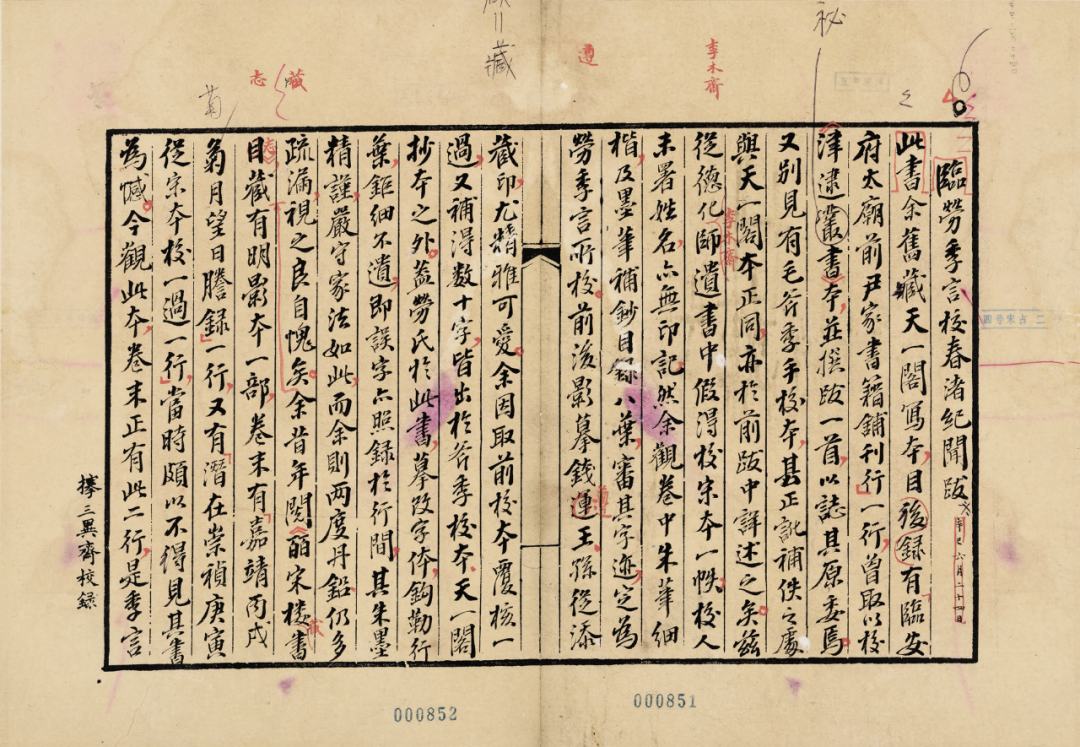 臨勞季言校春渚紀聞跋
辛巳六月二十四日
此書余舊藏天一閣寫本目後錄有臨安
府太廟前尹家書籍鋪刊行一行曾取以校
津逮叢書本並撰跋一首以誌其原委焉
又別見有毛斧季手校本甚正訛補佚之處
與天一閣本正同亦於前跋中詳述之矣茲
從德化師遺書中假得校宋本一帙校人
李木齋
未署姓名亦無印記然余觀卷中朱筆細
楷及墨筆補鈔目錄八葉審其字迹定為
勞季言所校前後影摹錢遵王孫從添
藏印尤精雅可愛余因取前校本覆核一
過又補得數十字皆出於斧季校本天一閣
抄本之外蓋勞氏於此書摹改字体鈎勒行
葉鉅細不遺即誤字亦照錄於行間其朱墨
精謹嚴守家法如此而余則兩度丹鉛仍多
疏漏視之良自愧矣余昔年閱皕宋樓書
目藏有明影本一部卷末有嘉靖丙戌
菊月望日謄錄一行又有潛在崇禎庚寅
從宋本校一過一行當時頗以不得見其書
為憾今觀此本卷末正有此二行是季言
擇三異齋校錄
秘
李木齋
遵
藏
藏
志
菊
000851
000852